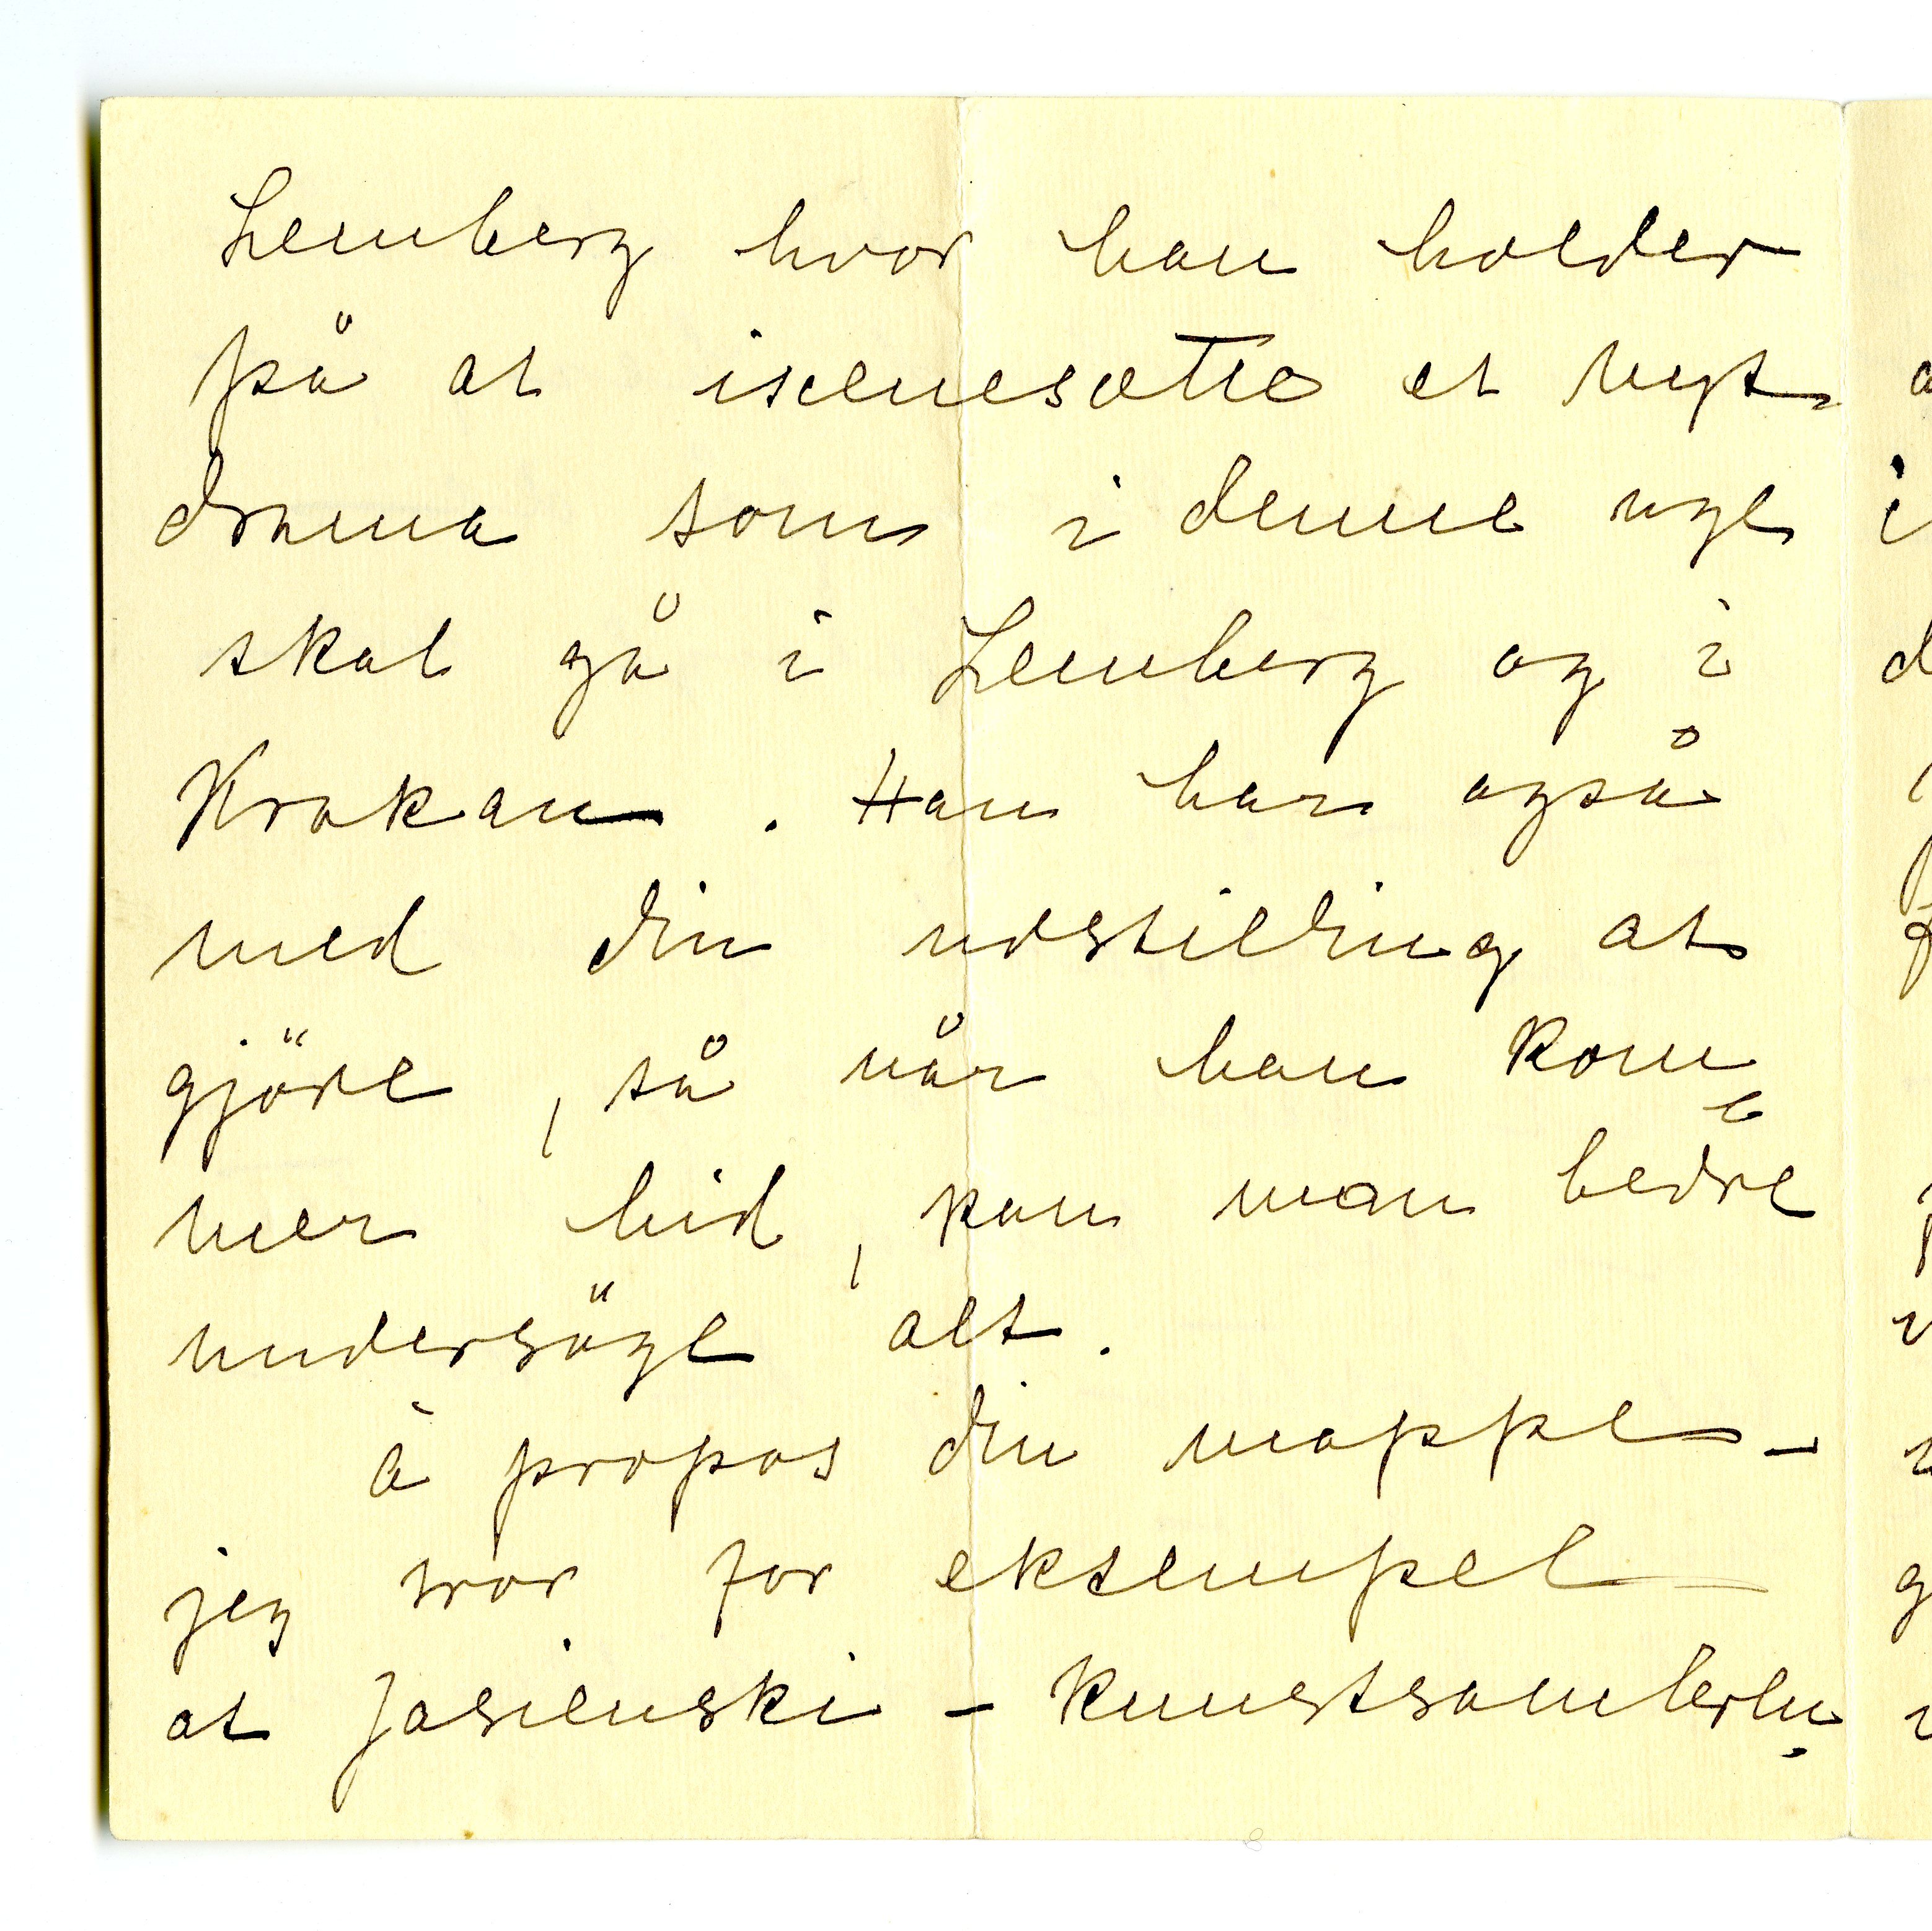 Lemberg hvor han holder
på at iscenesætte et nyt
drama som i denne uge
skal gå i Lemberg og i
Krakau. Han har også
med din udstilling at
gjöre, så når han kom
mer hid, kan man bedre
undersöge alt.
à propos din mappe –
jeg tror for eksempel –
at Jasienski – Kunstsamleren